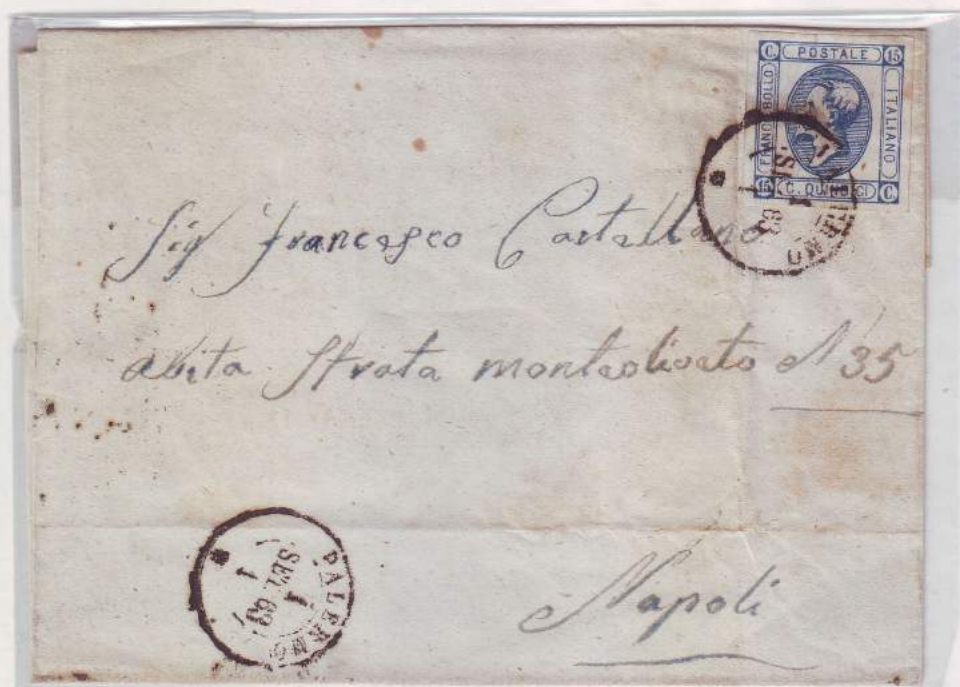 C. POSTALE 15
FRANCOBOLLO
ITALIANO
15 C. QUINDICI C.
Sig Francesco Castellano
abita Strata monteoliveto N 35
Napoli
PALERMO
1
SET. 63
1
PALERMO
1
63
1